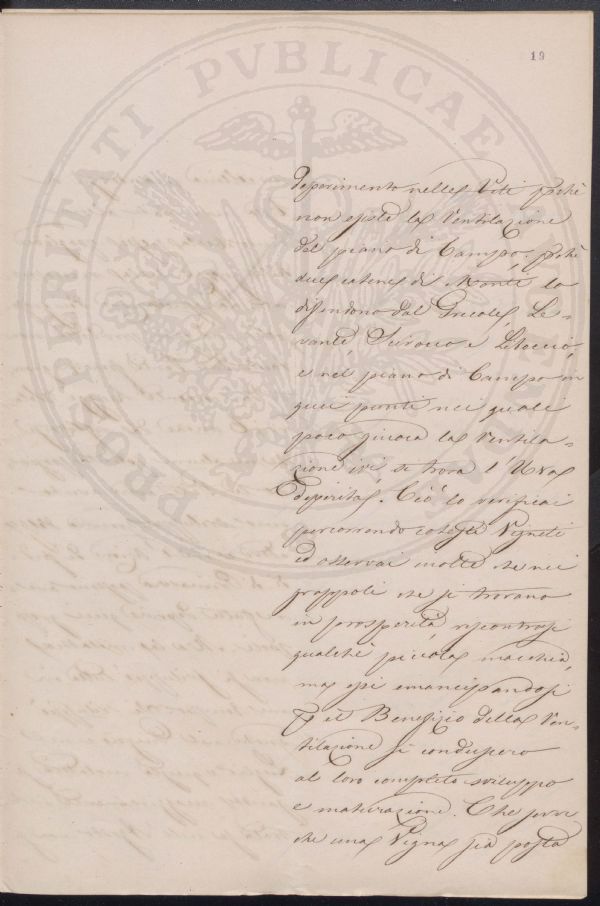 19
deperimento nelle Viti poichè
non esiste la Ventilazione
del piano di Campo, poichè
due catene di Monti lo
difendono dal Grecole, Le-
vante Scirocco e Libeccio,
e nel piano di Campo in
quei punti nei quali
poco giuoca la Ventila-
zione ivi si trova l'Uva
deperita. Ciò lo verificai
percorrendo codesti Vigneti
ed osservai inoltre che nei
grappoli che si trovano
in prosperità riscontrasi
qualche piccola macchia,
ma essi emancipandosi
p il Benefizio della Ven-
tilazione si condussero
al loro completo sviluppo
e maturazione. Che pure
che una Vigna sia posta
PROSPERITATI PVBLICAE AVGENDAE